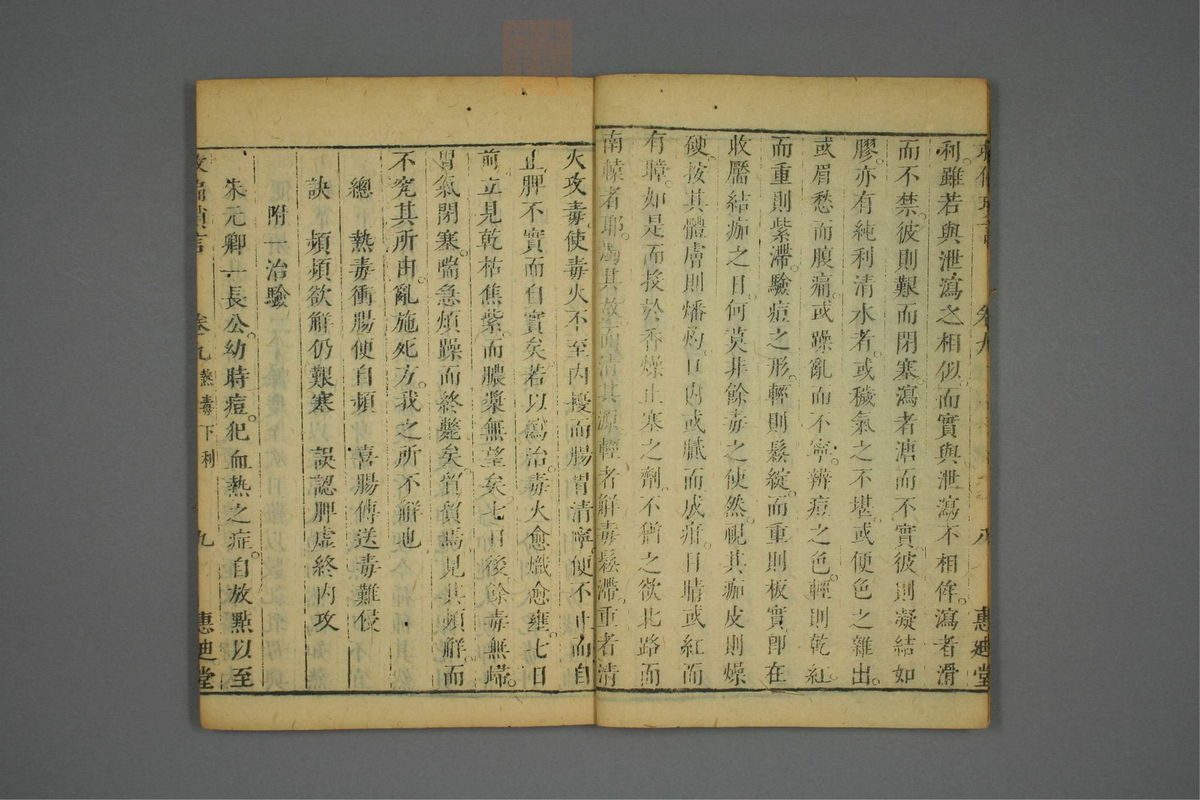 卷九 八 惠迪堂
利。雖若與泄瀉之相似。而實與泄瀉不相侔。瀉者滑
而不禁。彼則艱而閉塞。瀉者溏而不實。彼則凝結如
膠。亦有純利清水者。或穢氣之不堪。或便色之雜出。
或眉愁而腹痛。或躁亂而不寧。辨痘之色。輕則乾紅。
而重則紫滯。驗痘之形。輕則鬆綻。而重則板實。即在
收靨結痂之日。何莫非餘毒之使然。視其痂皮則燥
硬。按其體膚則燔灼。口內或膩而成疳。目睛或紅而
有障。如是而投於香燥止塞之劑。不猶之欲北路而
南轅者耶。溯其故而清其源。輕者解毒鬆滯。重者清
火攻毒。使毒火不至內擾。而腸胃清寧。便不止而自
止。脾不實而自實矣。若以瀉治。毒火愈熾愈壅。七日
前立見乾枯焦紫。而膿漿無望矣。七日後餘毒無歸。
胃氣閉塞。喘急煩躁而終斃矣。貿貿焉見其頻解。而
不究其所由。亂施死方。我之所不解也。
總 熱毒衝腸便自頻 喜腸傳送毒難侵
訣 頻頻欲解仍艱塞 誤認脾虛終內攻
附一治驗
朱元卿一長公。幼時痘。犯血熱之症。自放點以至
救偏瑣言 卷之九 熱毒下利 九 惠迪堂